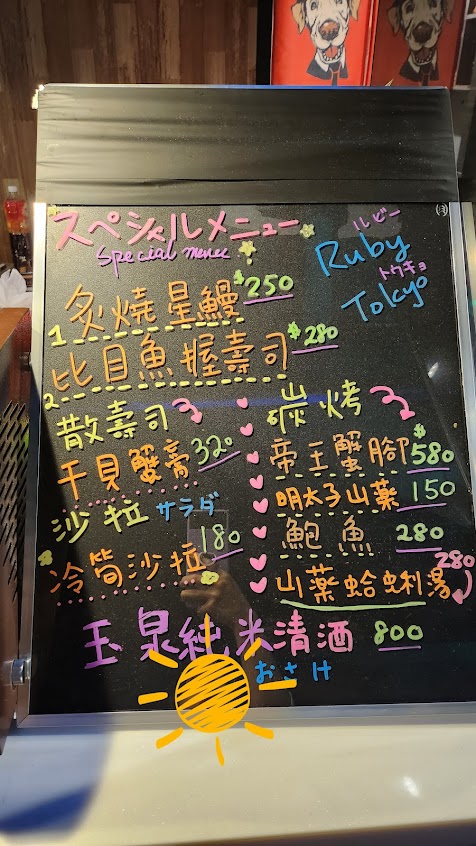 スペシャルメニュー
Special menu
ルビー
Ruby
トウキョ
Tokyo
1 炙燒星鰻 $250
2 比目魚握壽司 $280
散壽司
干貝蟹膏 320
沙拉 サラダ
冷筍沙拉 180
炭烤
帝王蟹腳 $580
明太子山藥 150
鮑魚 280
山藥蛤蜊湯 280
玉泉純米清酒 800
おさけ